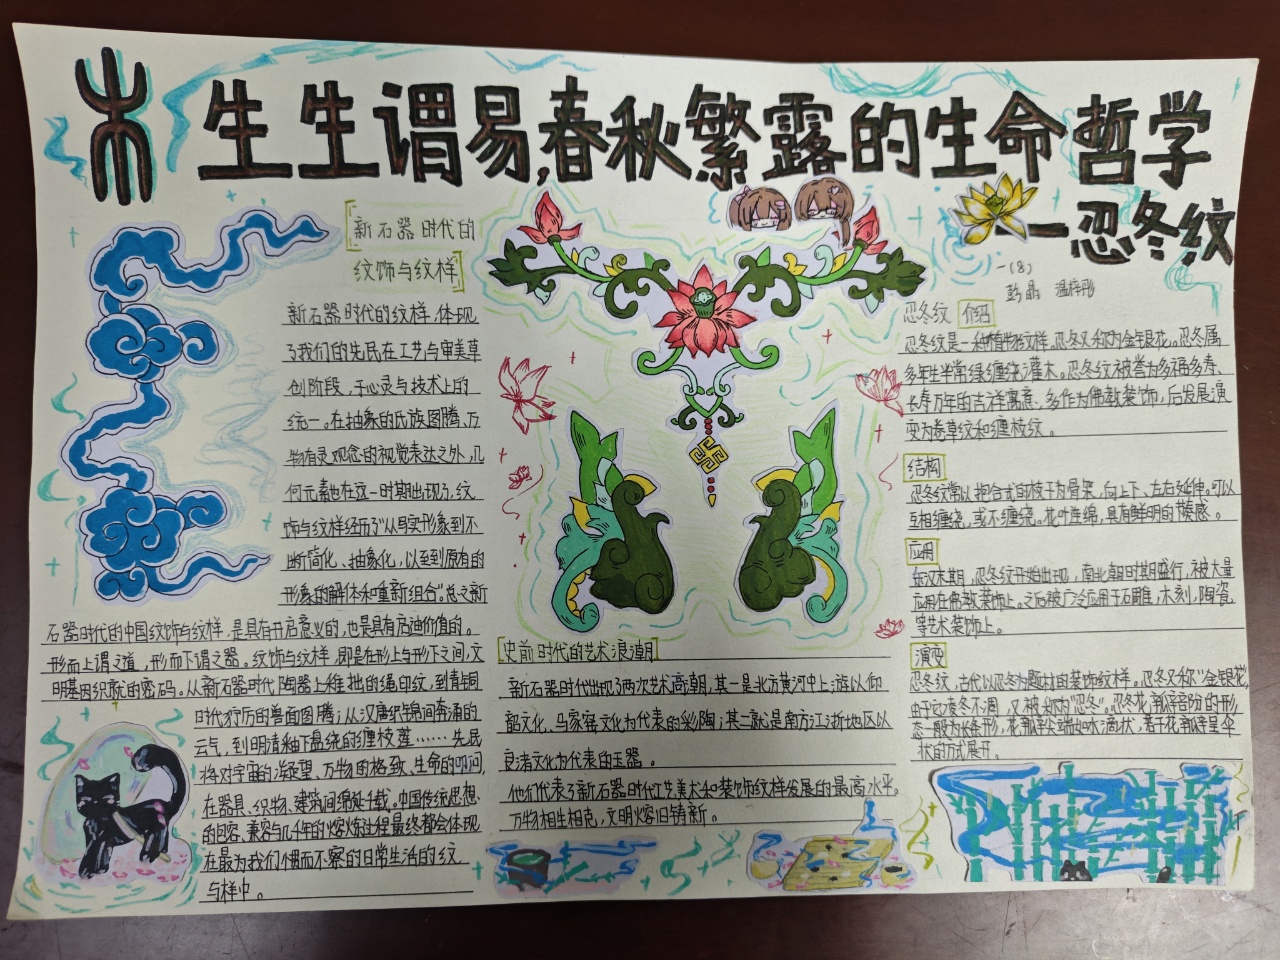 木
生生谓易,春秋繁露的生命哲学
一忍冬纹
一(8)
彭晶 温梓彤
新石器时代的
纹饰与纹样
新石器时代的纹样,体现
了我们的先民在工艺与审美草
创阶段,手心灵与技术上的
统一。在抽象的氏族图腾、万
物有灵观念的视觉表达之外,几
何元素也在这一时期出现了,纹
饰与纹样经历了“从具实形象到不
断简化、抽象化,以至到原有的
形象的解体和重新组合”总之新
石器时代的中国纹饰与纹样,是具有开启意义的,也是具有启迪价值的。
形而上谓之道,形而下谓之器。纹饰与纹样,即是在形上与形下之间,文
明基因织就的密码。从新石器时代陶器上稚拙的绳印纹,到青铜
时代狞厉的兽面图腾;从汉唐织锦间奔涌的
云气,到明清釉下盘绕的缠枝莲……先民
将对宇宙的凝望、万物的格致、生命的叩问,
在器具、织物、建筑间绵延千载。中国传统思想、
的包容、兼容与几千年的熔炼过程最终都会体现
在最为我们惯而不察的日常生活的纹
与样中。
史前时代的艺术浪潮
新石器时代出现了两次艺术高潮,其一是北方黄河中上游以仰
韶文化、马家窑文化为代表的彩陶;其二就是南方江浙地区以
良渚文化为代表的玉器。
他们代表了新石器时代工艺美术和装饰纹样发展的最高水平。
万物相生相克,文明熔旧铸新。
忍冬纹 介绍
忍冬纹是一种植物纹样,忍冬又称为金银花。忍冬属
多年生半常绿缠绕灌木。忍冬纹被誉为多福多寿、
长寿万年的吉祥寓意、多作为佛教装饰,后发展演
变为卷草纹和缠枝纹。
结构
忍冬纹常以抱合式的枝干为骨架,向上下、左右延伸。可以
互相缠绕,或不缠绕。花叶连绵,具有鲜明的节奏感。
应用
东汉末期,忍冬纹开始出现,南北朝时期盛行,被大量
应用在佛教装饰上。之后被广泛应用于石雕,木刻,陶瓷,
等艺术装饰上。
演变
忍冬纹,古代以忍冬为题材的装饰纹样。忍冬又称“金银花”,
由于它凌冬不凋,又被如为“忍冬”。忍冬花瓣部分的形
态一般为长条形,花瓣尖端如水滴状,若干花瓣呈伞
状的方式展开。